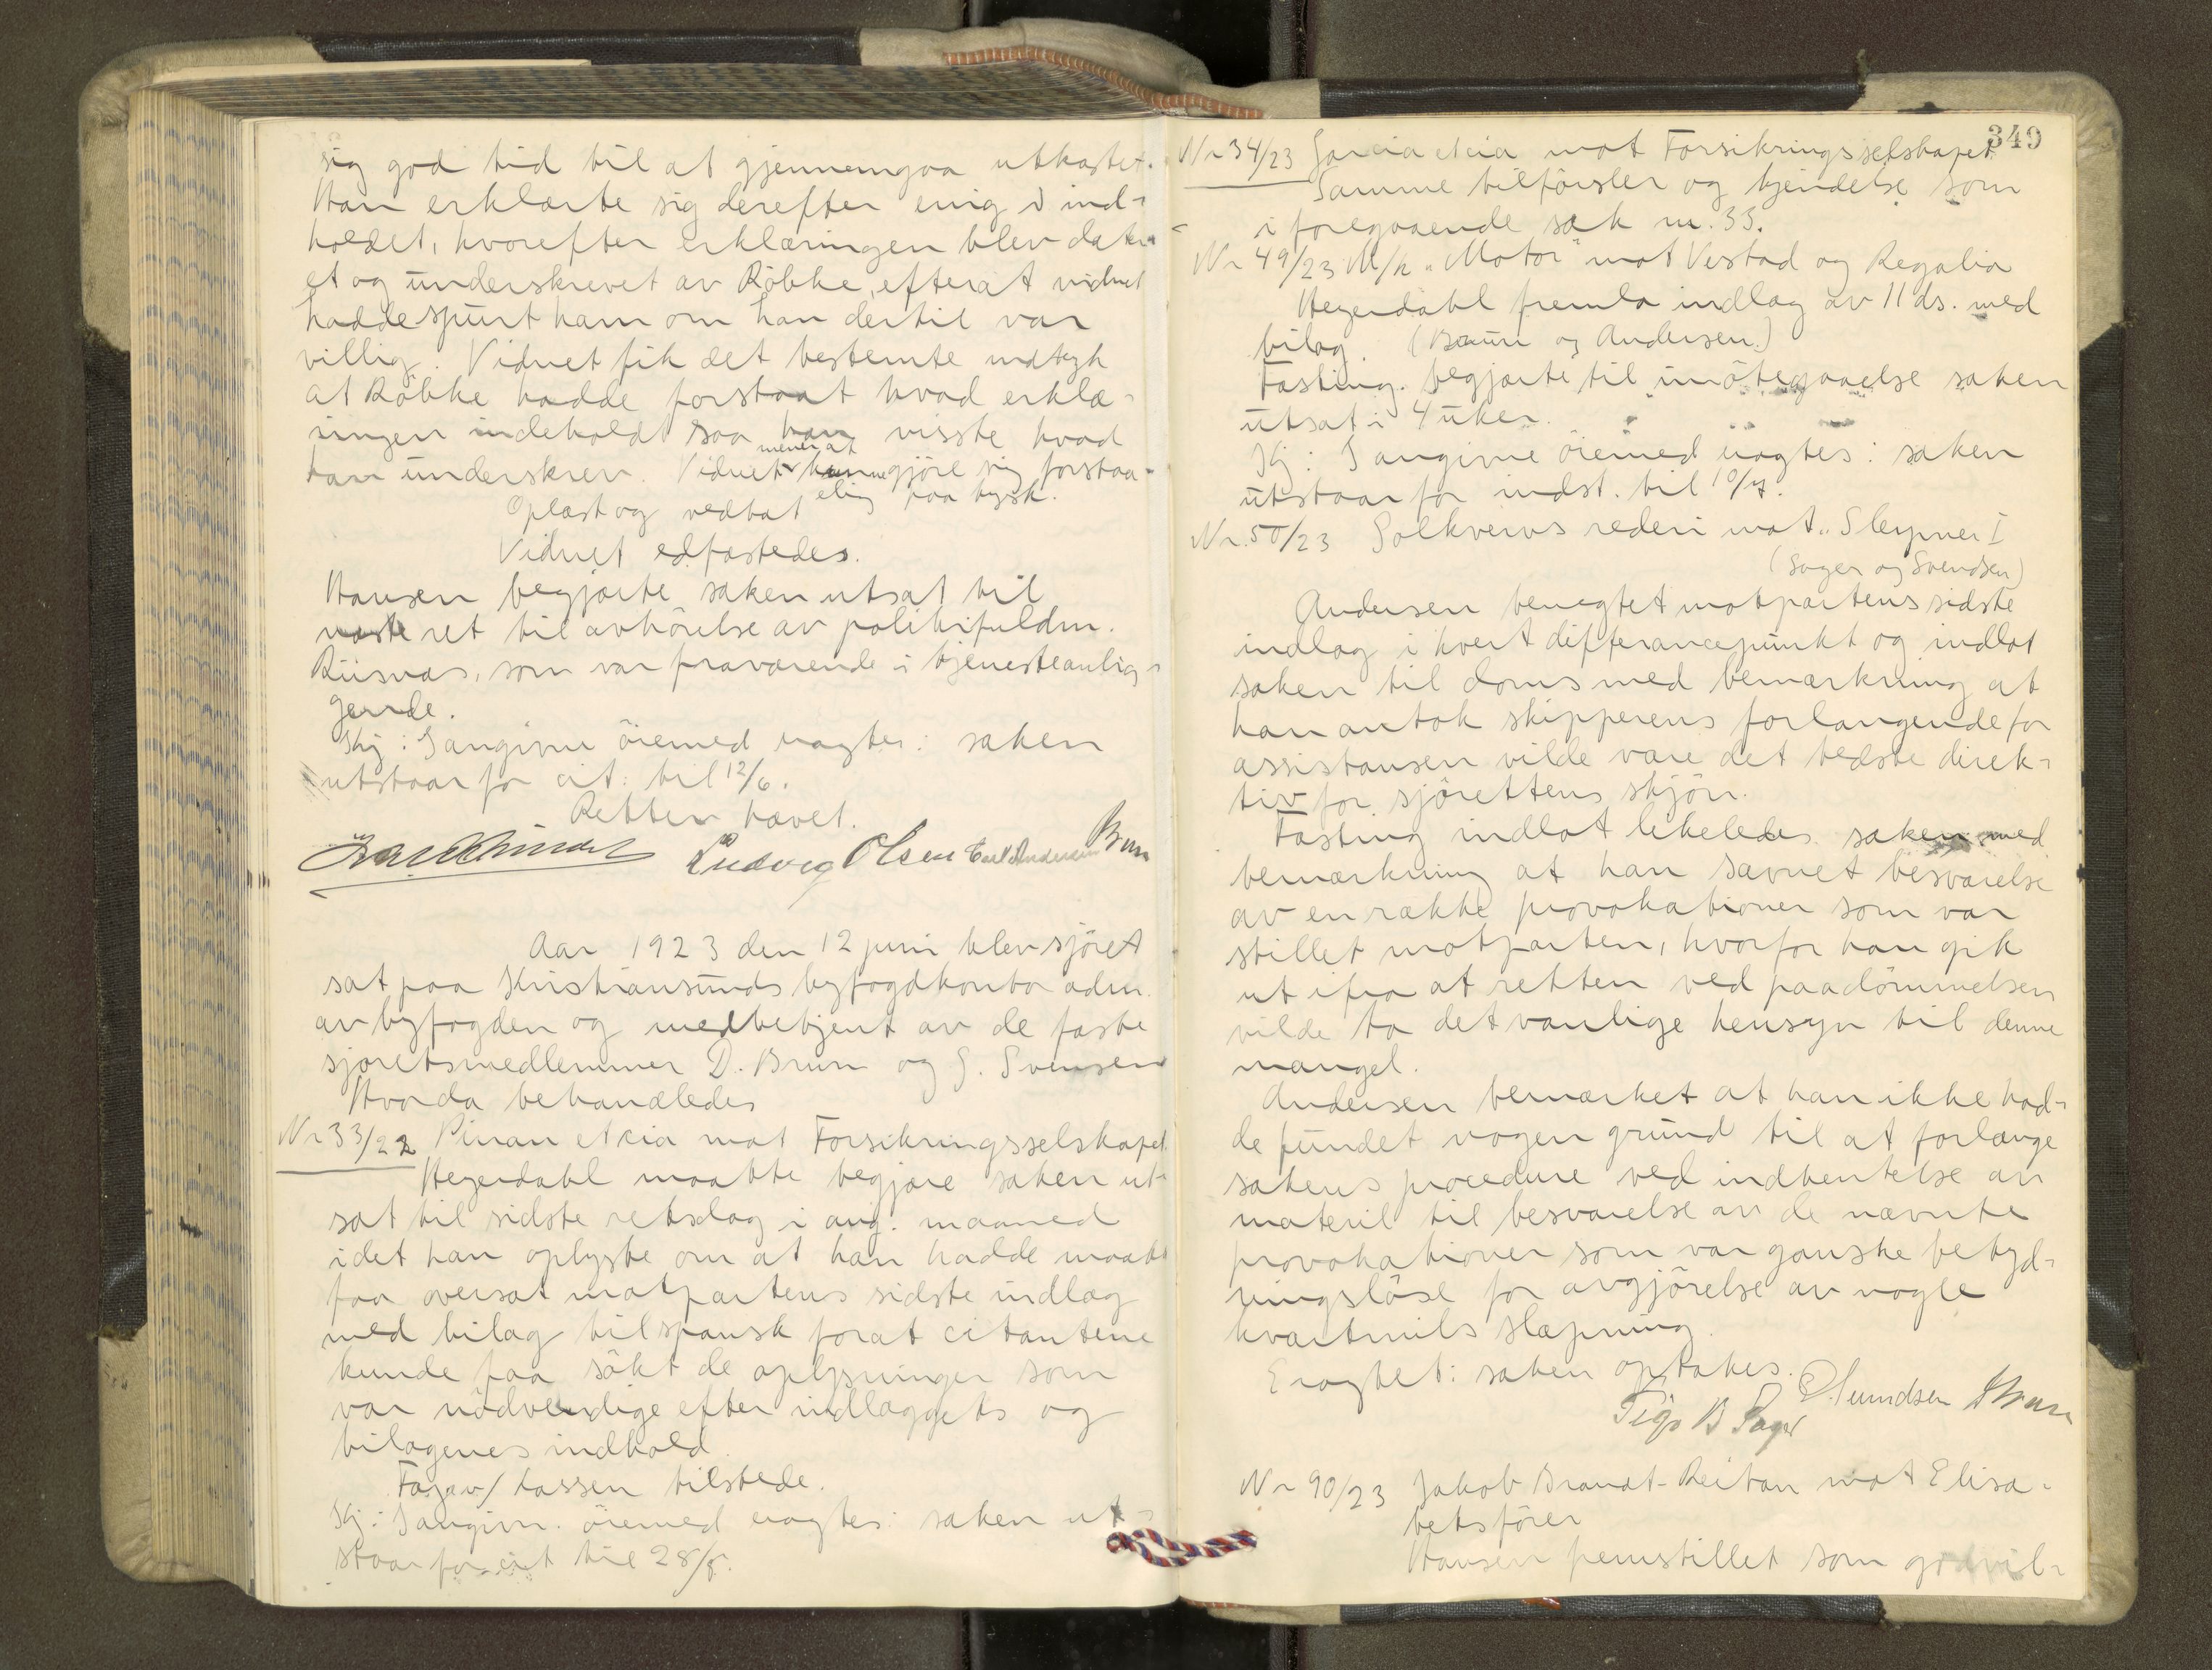 sig god tid til at gjennemgaa utkastet.
Han erklærte sig derefter enig i ind-
holdet, hvorefter erklæringen blev dater-
et og underskrevet av Röbke, efterat vidnet
hadde spurt ham om han dertil var
villig. Vidnet fik det bestemte indtryk
at Röbke hadde forstaat hvad erklæ-
ringen indeholdt saa han visste hvad
han underskrev. Vidnet mener at kunne gjöre sig forstaa-
elig paa tysk.
Oplæst og vedtat
Vidnet edfæstedes.
Hansen begjærte saken utsat til
næste ret til avhörelse av politifuldm.
Riisnæs, som var fraværende i tjenesteanlig-
gende.
Kj: I angivne öiemed eragtes: saken
utstaar for cit: til 12/6.
Retten hævet.
Ludvig Olsen Carl Andersen Brun
Aar 1923 den 12 juni blev sjöret
sat paa Kristiansunds byfogdkontor adm.
av byfogden og medbetjent av de faste
sjöretsmedlemmer D. Brun og G. Svensen
Hvorda behandledes
Nr 33/22 Pinan et cia mot Forsikringsselskapet
Hegerdahl maatte begjære saken ut-
sat til sidste retsdag i aug. maaned
idet han oplyste om at han hadde maatt
faa oversat motpartens sidste indlæg
med bilag til spansk forat citantene
kunde faa sökt de oplysninger som
var nödvendige efter indlæggets og
bilagenes indhold.
Fasav/ Lassen tilstede.
Kj: I angivn. öiemed eragtes: saken ut-
staar for cit til 28/8.
349
Nr 34/23 Garcia et cia mot Forsikringsselskapet
Samme tilförsler og kjendelse som
i foregaaende sak nr. 33.
Nr 49/23 M/k "Motor" mot Vestad og Regalia
Hegerdahl fremla indlæg av 11 ds. med
bilag. (Brun og Andersen.)
Fasting. begjærte til imötegaaelse saken
utsat i 4 uker.
Kj: I angivne öiemed eragtes: saken
utstaar for indst. til 10/7.
Nr. 50/23 Solkvervs rederi mot "Sleipner I
(Sager og Svendsen)
Andersen benegtet motpartens sidste
indlæg i hvert differancepunkt og indlot
saken til doms med bemærkning at
han antok skipperens forlangende for
assistansen vilde være det bedste direk-
tiv for sjörettens skjön.
Fasting indlot likeledes saken med
bemærkning at han savnet besvarelse
av en række provokationer som var
stillet motparten, hvorfor han gik
ut ifra at retten ved paadömmelsen
vilde ta det vanlige hensyn til denne
mangel.
Andersen bemærket at han ikke had-
de fundet nogen grund til at forlænge
sakens procedure ved indhentelse av
materil til besvarelse av de nævnte
provokationer som var ganske betyd-
ningslöse for avgjörelse av nogle
kvartmils slæpning.
Eragtet: saken optakes.
Sigv B Sager G. Svendsen D Brun
Nr 90/23 Jakob Brandt-Reitan mot Elisa-
betsfören
Hansen fremstillet som godvil-